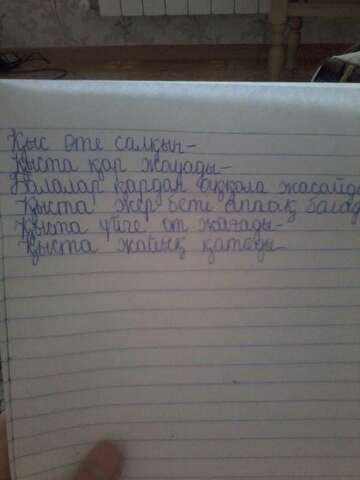 Қыс өте салқын-
Қыста қар жауады-
Балалар қардан аққала жасайд
Қыста жер беті аппақ бағад
Қыста үйге от жағады-
Қыста жайық қатады-